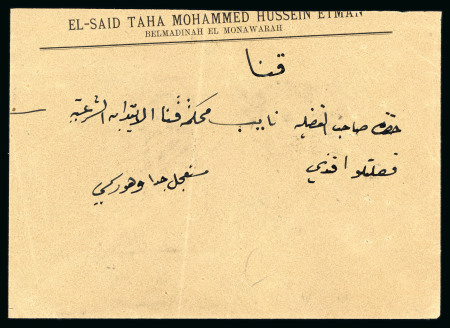 EL-SAID TAHA MOHAMMED HUSSEIN ETMAN
BELMADINAH EL MONAWARAH
قنا
حضرة صاحب الفضيله نايب محكمة قنا الابتدايه الشرعية
فضيلتلو افندي
مستعجل جدا وهو رسمي